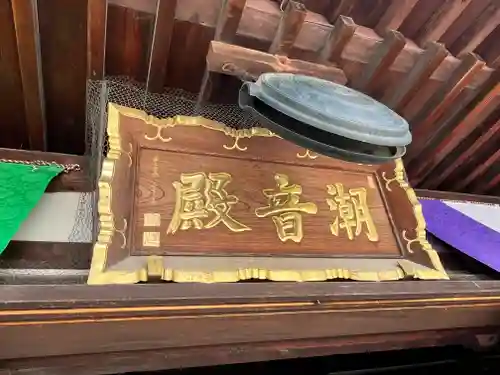 潮音殿